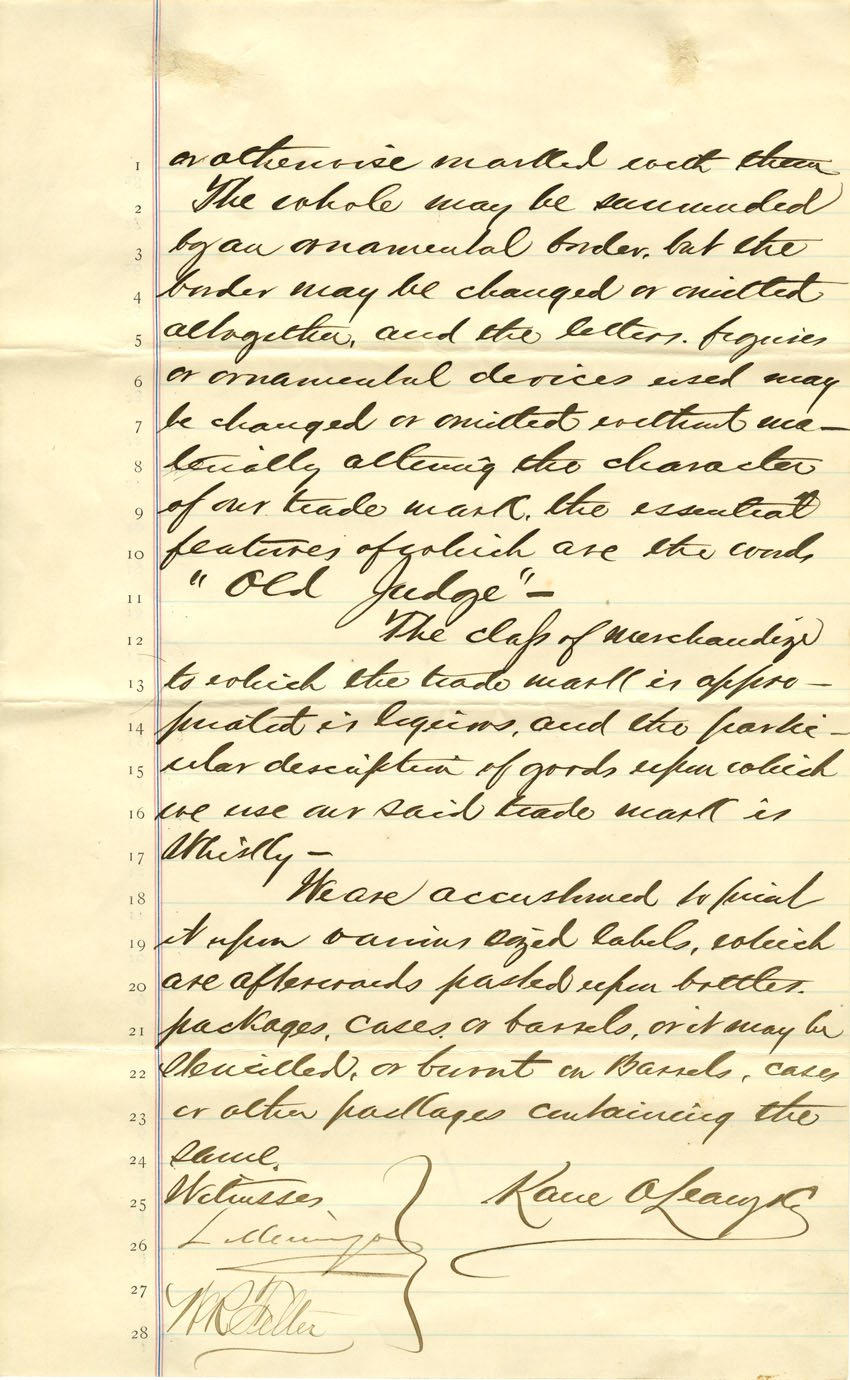 1 or otherwise marked with them
2 The whole may be surrounded
3 by an ornamental border, but the
4 border may be changed or omitted
5 altogether, and the letters, figures
6 or ornamental devices used may
7 be changed or omitted without ma-
8 terially altering the character
9 of our trade mark, the essential
10 features of which are the words
11 "Old Judge"—
12 The class of merchandize
13 to which the trade mark is appro-
14 priated is liquors, and the partic-
15 ular description of goods upon which
16 we use our said trade mark is
17 Whisky—
18 We are accustomed to print
19 it upon various sized labels, which
20 are afterwards pasted upon bottles,
21 packages, cases, or barrels, or it may be
22 stencilled, or burnt on Barrels, cases
23 or other packages containing the
24 same.
25 Witnesses Kane O'Leary & Co
26 L
27
28 W R